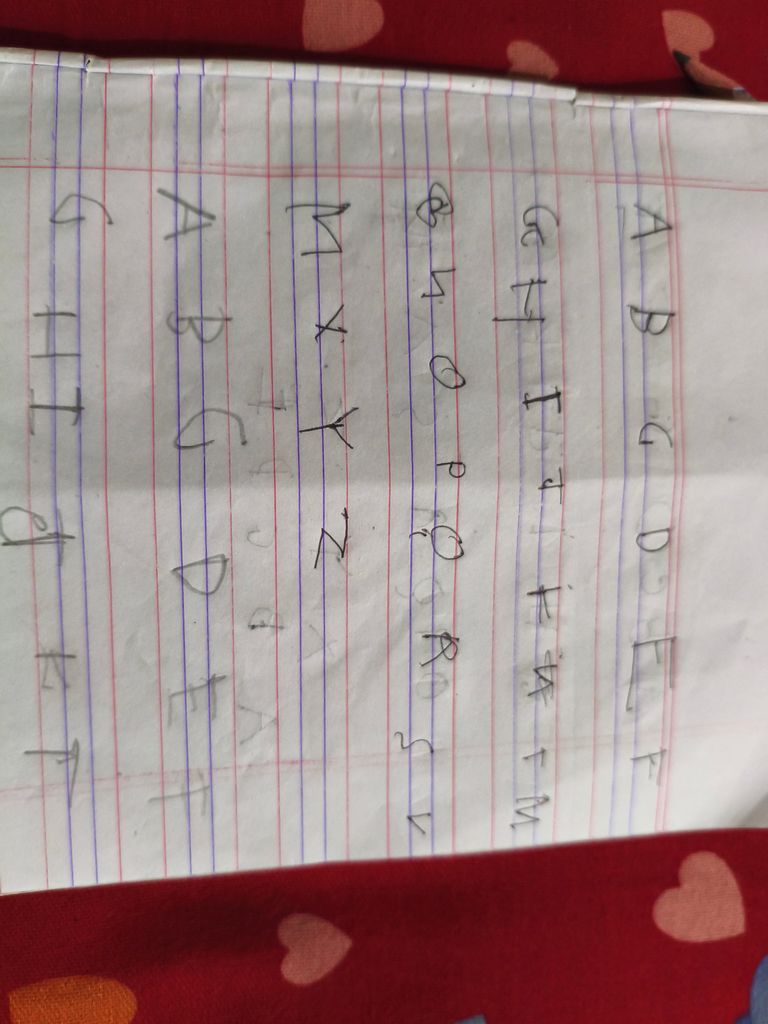 A B C D E F
G H I J K M
O P Q R S
M X Y Z
A B C D E F
G H I d F